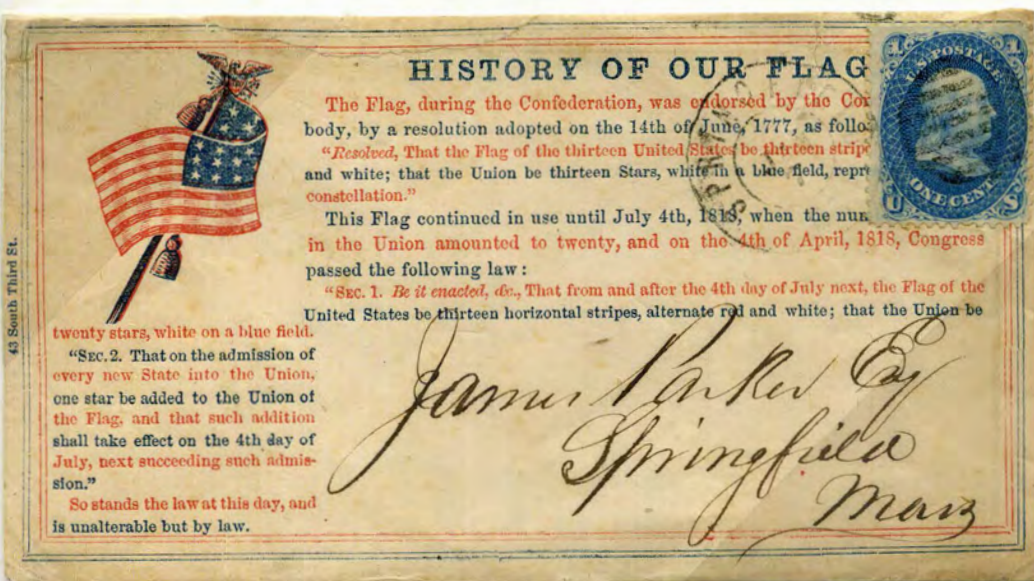 HISTORY OF OUR FLAG
The Flag, during the Confederation, was endorsed by the Con
body, by a resolution adopted on the 14th of June, 1777, as follo
"Resolved, That the Flag of the thirteen United States be thirteen stripe
and white; that the Union be thirteen Stars, white in a blue field, repre
constellation."
This Flag continued in use until July 4th, 1818, when the num
in the Union amounted to twenty, and on the 4th of April, 1818, Congress
passed the following law:
"SEC. 1. Be it enacted, &c., That from and after the 4th day of July next, the Flag of the
United States be thirteen horizontal stripes, alternate red and white; that the Union be
twenty stars, white on a blue field.
"SEC. 2. That on the admission of
every new State into the Union,
one star be added to the Union of
the Flag, and that such addition
shall take effect on the 4th day of
July, next succeeding such admis-
sion."
So stands the law at this day, and
is unalterable but by law.
43 South Third St.
1 1
U.S. POSTAGE
ONE CENT
U S
SPRING
James Parker Esq
Springfield
Mass